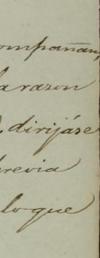 ompañan,
la razon
dirijáse
previa
loque